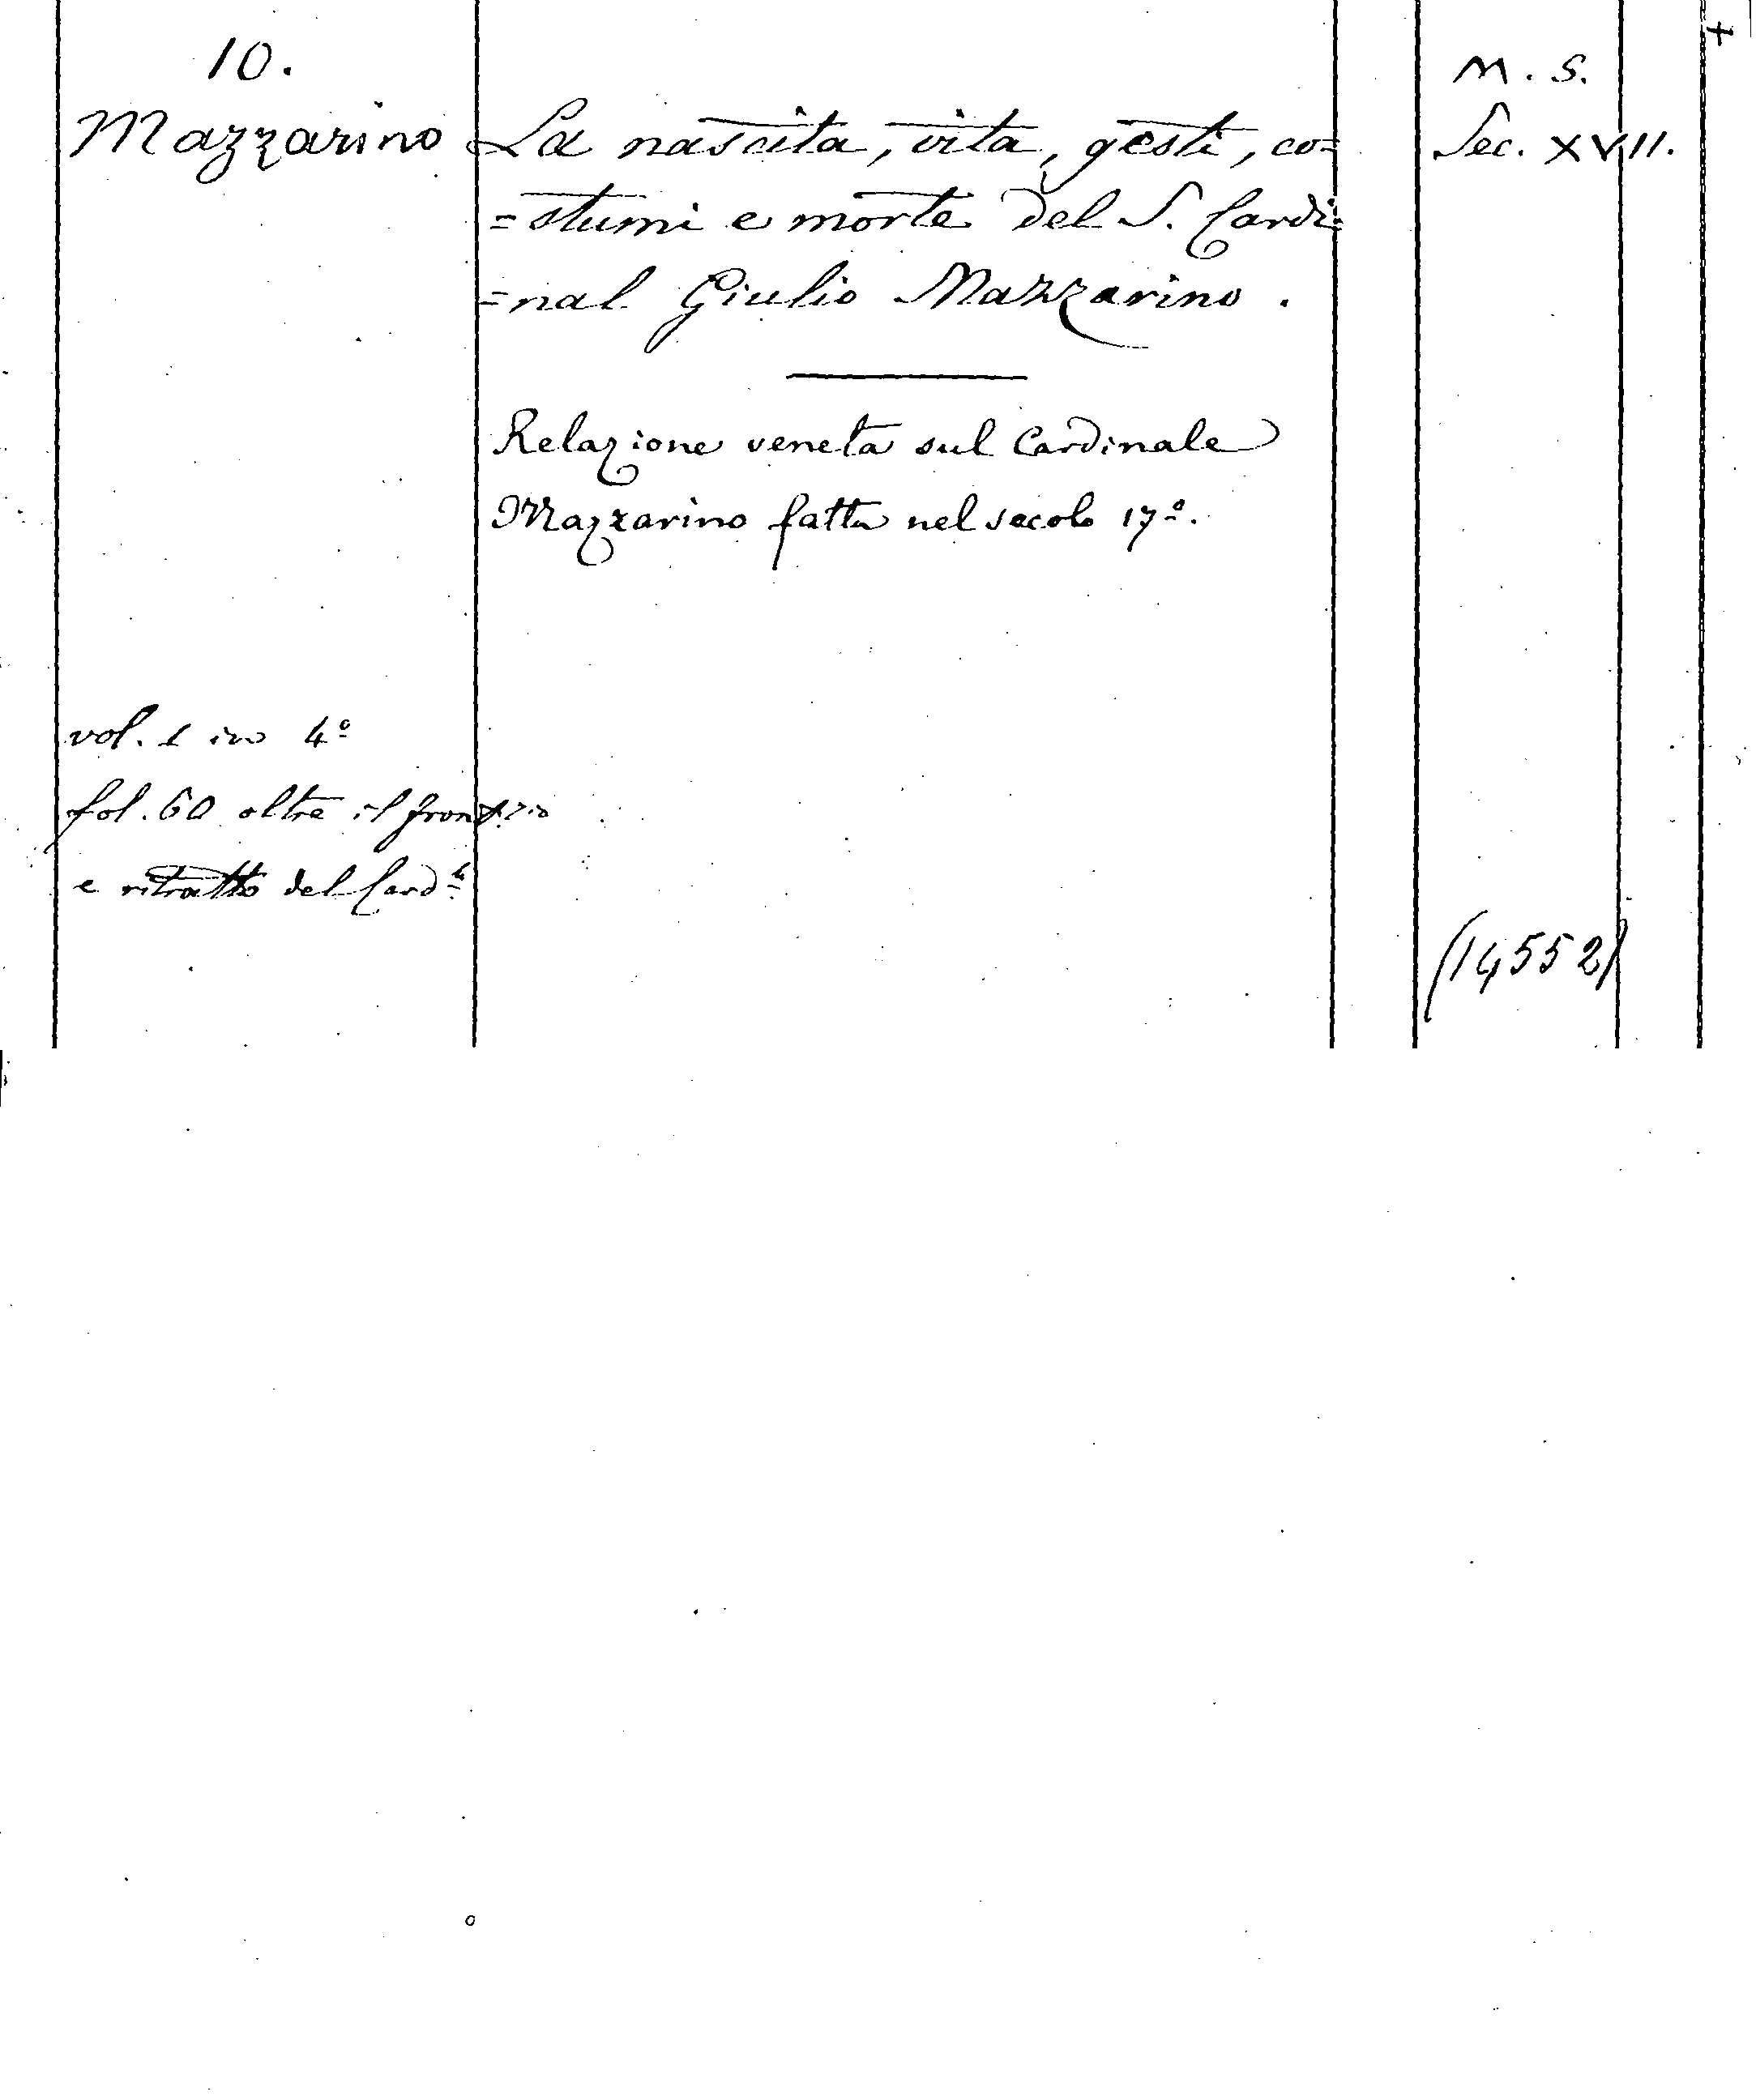 10.
Mazzarino
La nascita, vita, gesti, co=
=stumi e morte del S. Cardi=
=nal Giulio Mazzarino.
M. S.
Sec. XVII.
Relazione veneta sul Cardinale
Mazzarino fatta nel secolo 17º.
vol. 1 in 4º
fol. 60 oltre il
e ritratto del Card.ˡᵉ
(14552)